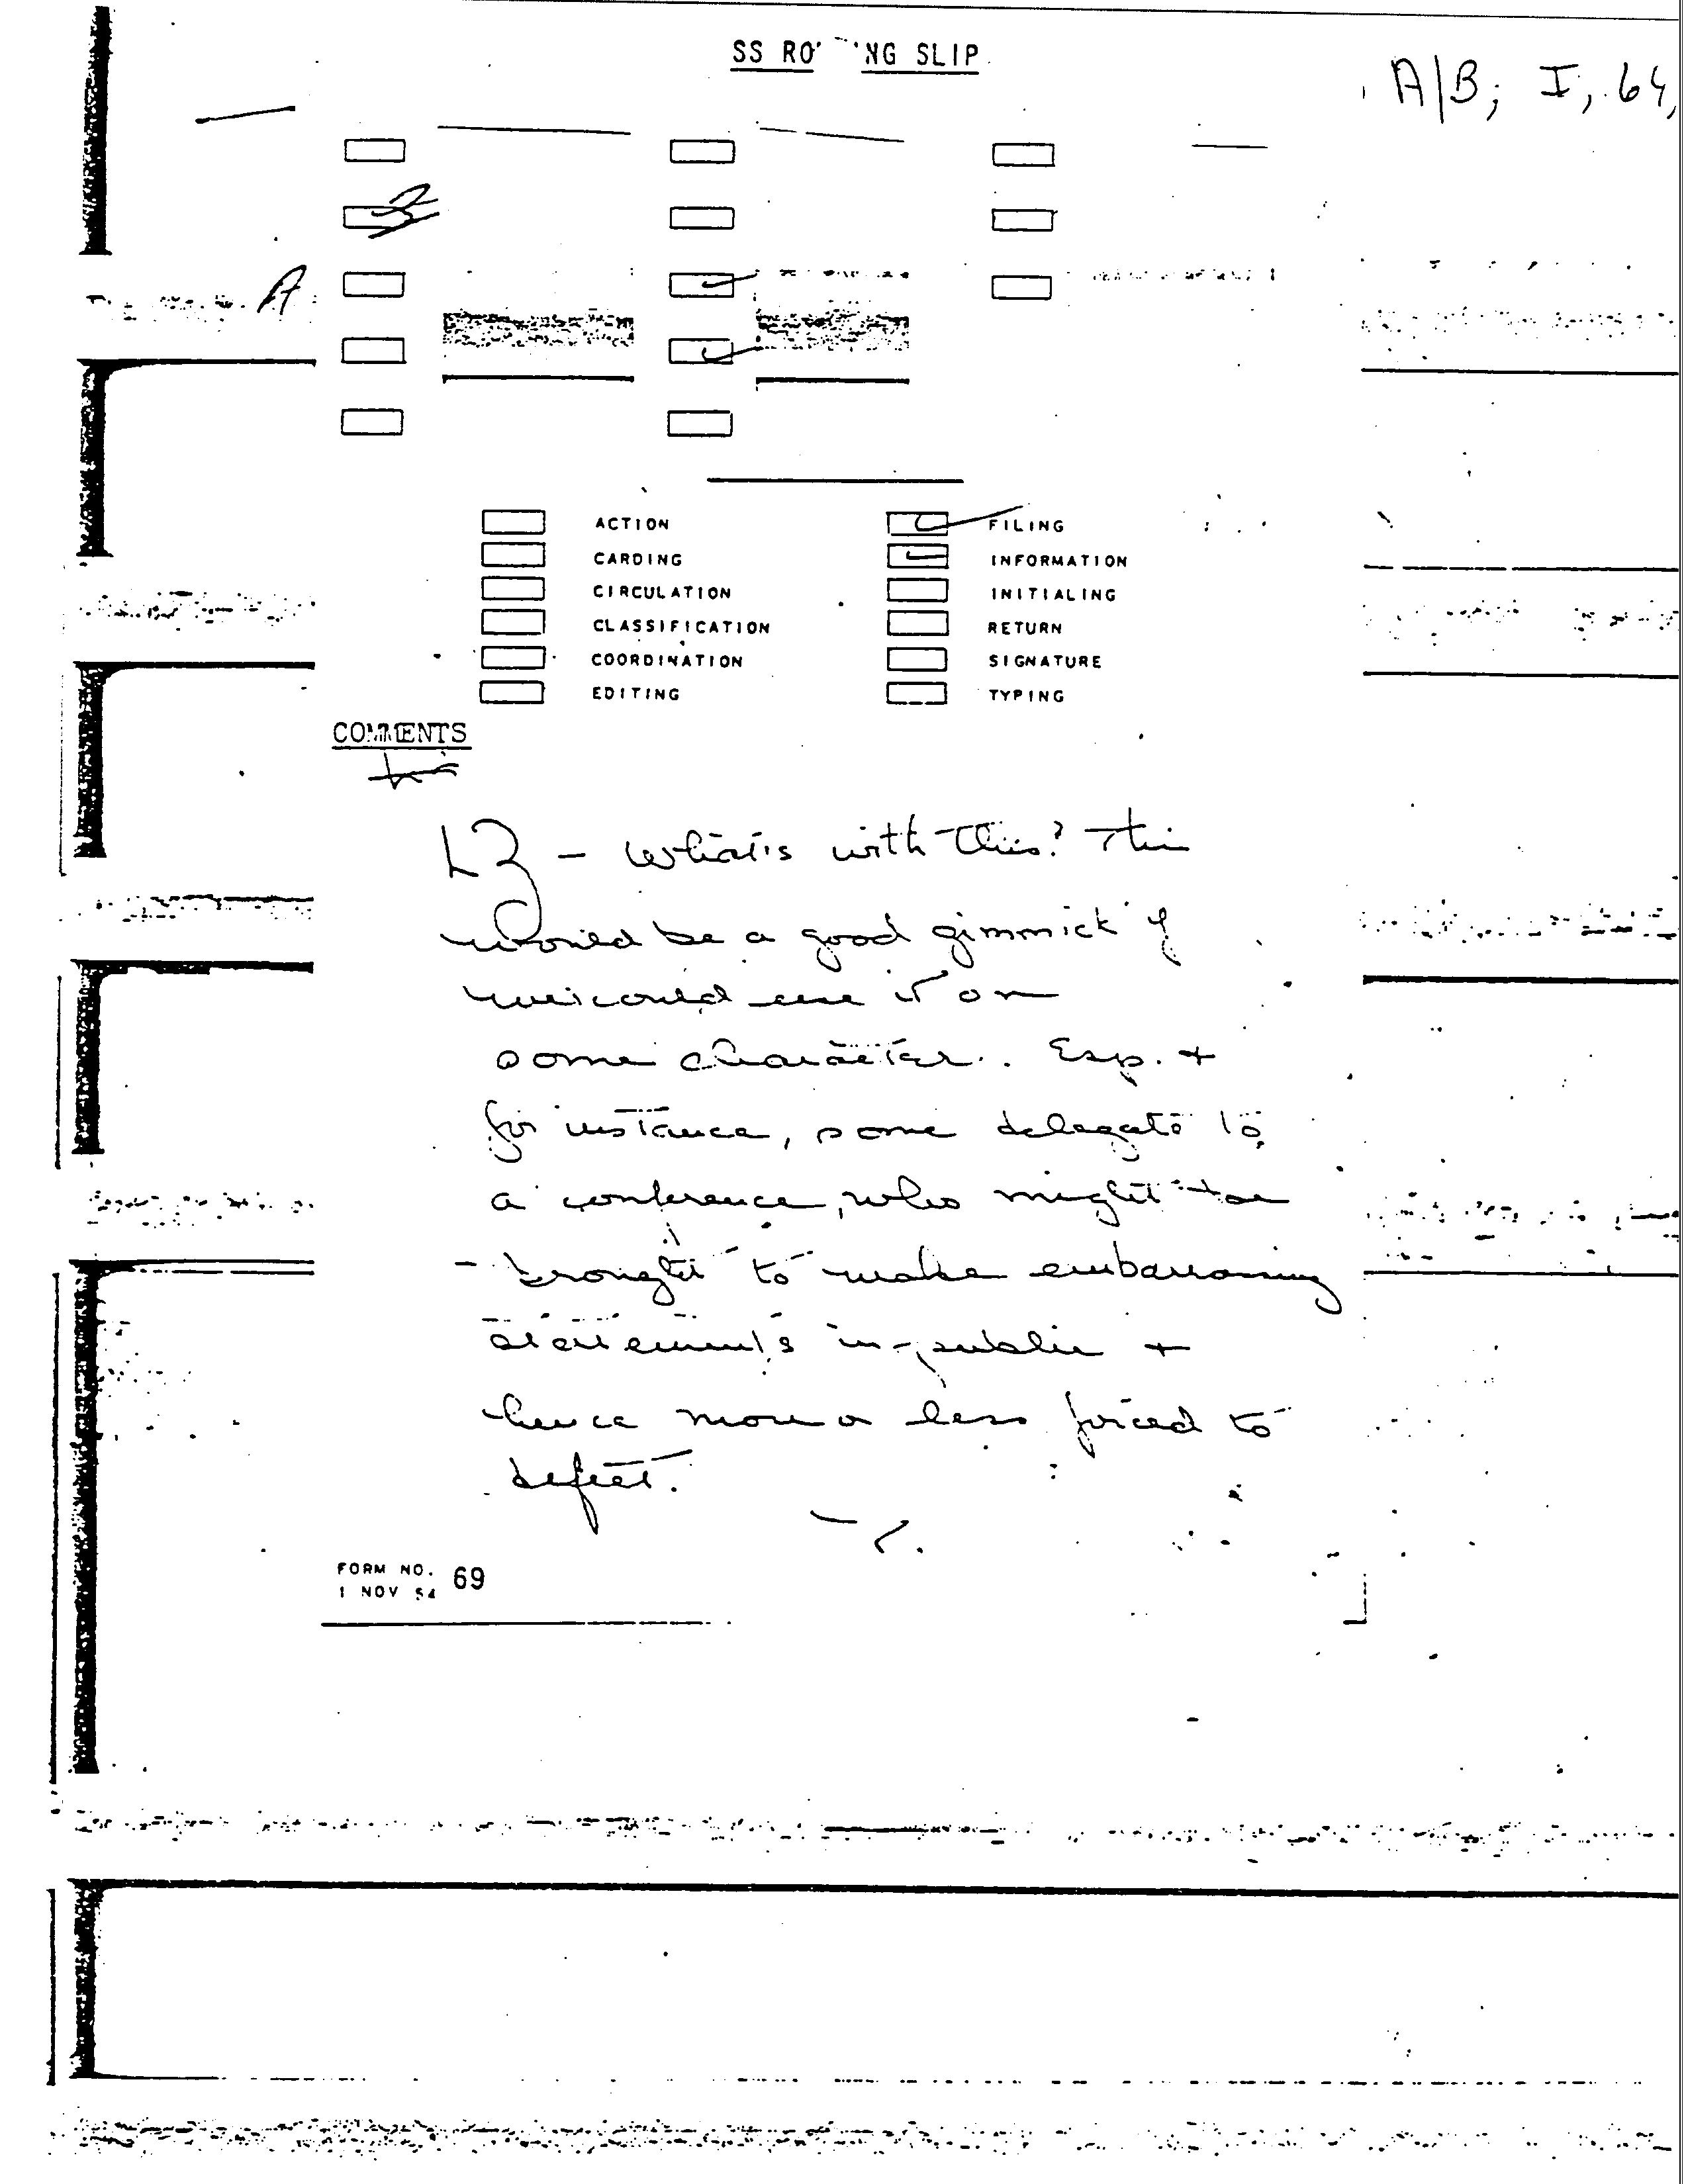 SS RO NG SLIP
A/B; I, 64,
A
ACTION FILING
CARDING INFORMATION
CIRCULATION INITIALING
CLASSIFICATION RETURN
COORDINATION SIGNATURE
EDITING TYPING
COMMENTS
What's with this? This
would be a good gimmick if
we could use it on
some character. Esp. +
for instance, some delegate to
a conference, who might be
brought to make embarrassing
statements in public +
hence more or less forced to
defect.
FORM NO. 69
1 NOV 54